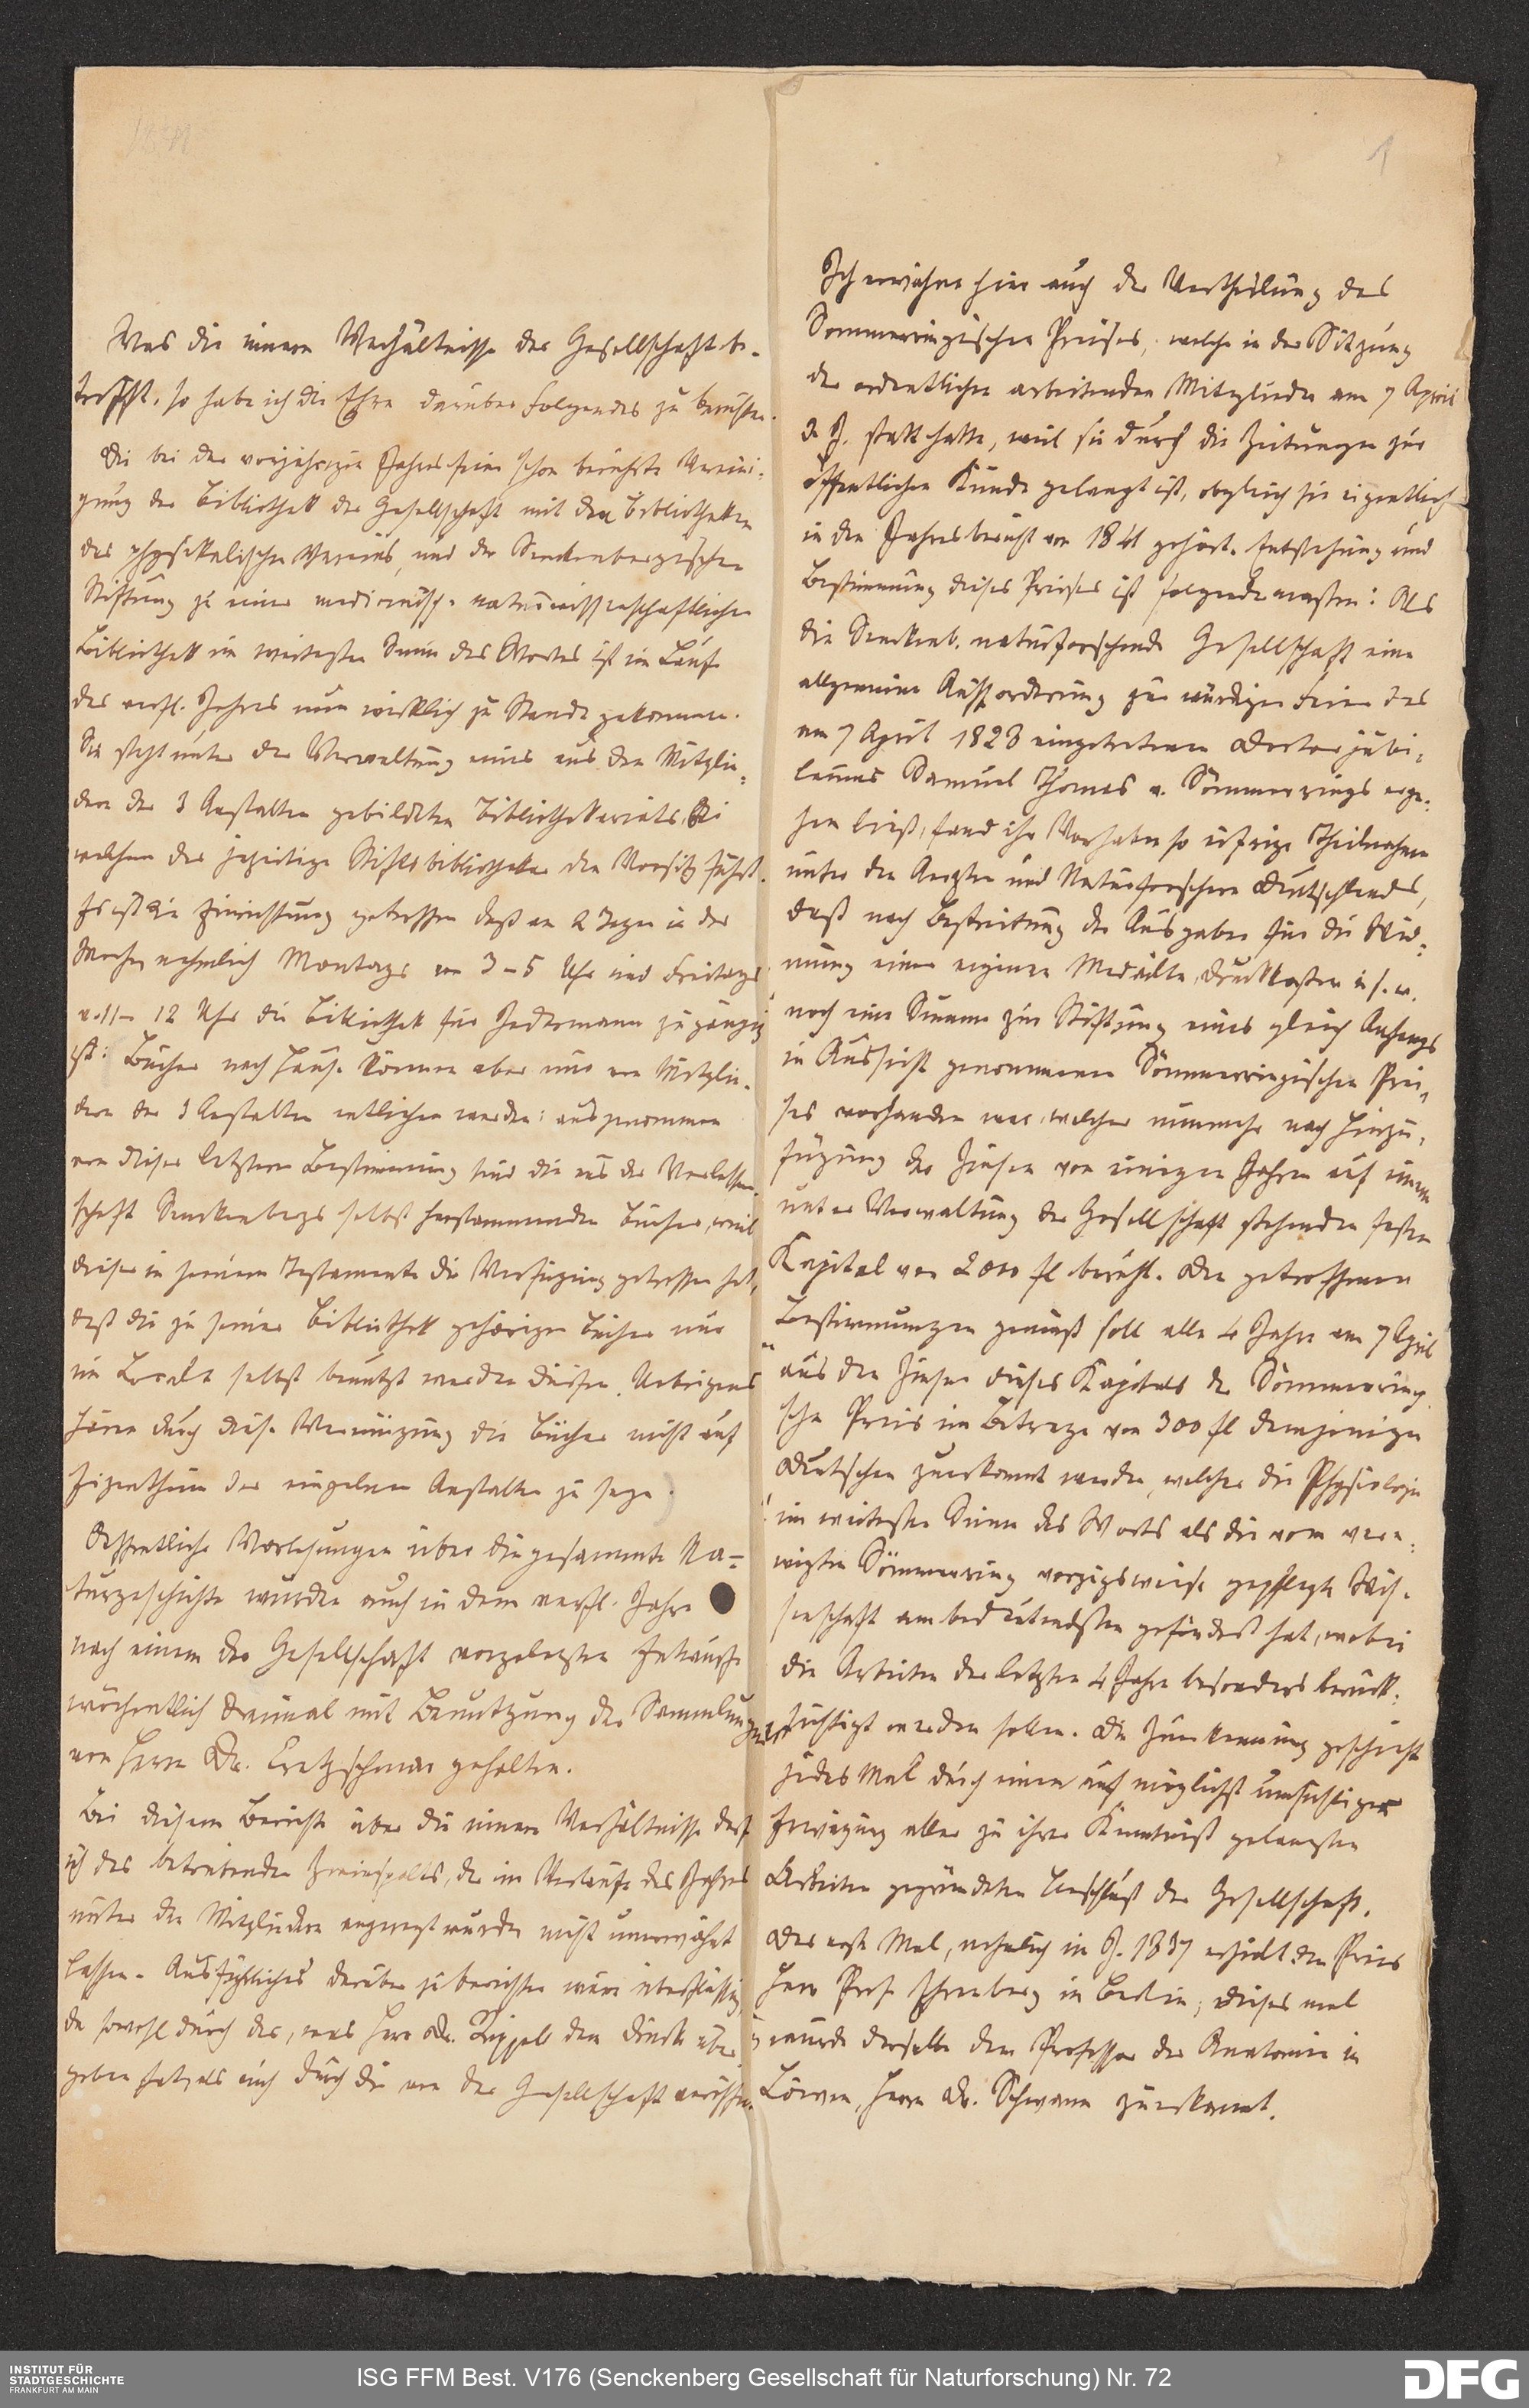 1
Was die innern Verhältnisse der Gesellschaft be-
trifft, so habe ich die Ehre darüber Folgendes zu berichten.
Die bei der vorjährigen Jahresfeier schon berührte Vereini-
gung der Bibliothek der Gesellschaft mit den Bibliotheken
des physikalischen Vereins, und der Senckenbergischen
Stiftung zu einer medicinisch-naturwissenschaftlichen
Bibliothek im weitesten Sinn des Wortes ist im Laufe
des verfl. Jahres nun wirklich zu Stande gekommen.
Sie steht unter der Verwaltung eines aus den Mitglie-
dern der 3 Anstalten gebildeten Bibliothekariats, bei
welchem der jezeitige Stiftsbibliothekar den Vorsitz führt.
Es ist die Einrichtung getroffen daß an 2 Tagen in der
Woche, nehmlich Montags von 3-5 Uhr und Freitags
v. 11- 12 Uhr die Bibliothek für Jedermann zugängig
ist: Bücher nach Hause können aber nur von Mitglie-
dern der 3 Anstalten entliehen werden: ausgenommen
von dieser letztern Bestimmung sind die aus der Verlassen-
schaft Senckenbergs selbst herstammenden Bücher, weil
dieser in seinem Testamente die Verfügung getroffen hat,
daß die zu seiner Bibliothek gehörigen Bücher nur
im Locale selbst benutzt werden dürfen. Uebrigens
hören durch diese Vereinigung die Bücher nicht auf
Eigenthum der einzelnen Anstalten zu seyn.
Oeffentliche Vorlesungen über die gesammte Na-
turgeschichte wurden auch in dem verfl. Jahre
nach einem der Gesellschaft vorgelegten Entwurfe
wöchentlich dreimal mit Benutzung der Sammlungen
von Herrn Dr. Cretzschmar gehalten.
Bei diesem Berichte über die innern Verhältnisse darf
ich des betrübenden Zwiespalts, der im Verlaufe des Jahres
unter den Mitgliedern angeregt wurde, nicht unerwähnt
lassen. Ausführliches darüber zu berichten wäre überflüssig,
da sowohl durch das, was Herr Dr. Rüppell dem Druck über-
geben hat, als auch durch die von der Gesellschaft veröffen-
Ich erwähne hier auch der Vertheilung des
Sömmerringischen Preises, welche in der Sitzung
der ordentlichen arbeitenden Mitglieder am 7 April
d. J. statt hatte, weil sie durch die Zeitungen zur
öffentlichen Kunde gelangt ist, obgleich sie eigentlich
in den Jahresbericht von 1841 gehört. Entstehung und
Bestimmung dieses Preises ist folgendermassen: Als
die Senckenb. naturforschende Gesellschaft eine
allgemeine Aufforderung zur würdigen Feier des
am 7 April 1828 eingetretenen Doctorjubi-
läums Samuel Thomas v. Sömmerrings erge-
hen ließ, fand ihr Vorhaben so eifrige Theilnahme
unter den Aerzten und Naturforschern Deutschlands,
daß nach Bestreitung der Ausgaben für die Wid-
mung einer eigenen Medaille, Druckkosten u. s. w.
noch eine Summe zur Stiftung eines gleich Anfangs
in Aussicht genommenen Sömmerringischen Prei-
ses vorhanden war, welcher nunmehr nach Hinzu-
fügung der Zinsen von einigen Jahren auf einem
unter Verwaltung der Gesellschaft stehenden festen
Kapital von 2000 fl beruht. Den getroffenen
Bestimmungen gemäß soll alle 4 Jahre am 7 April
aus den Zinsen dieses Kapitals der Sömmerring-
sche Preis im Betrage von 300 fl demjenigen
Deutschen zuerkannt werden, welcher die Physiologie
im weitesten Sinne des Worts als die vom vere-
wigten Sömmerring vorzugsweise gepflegte Wis-
senschaft am bedeutendsten gefördert hat, wobei
die Arbeiten der letzten 4 Jahre besonders berück-
sichtigt werden sollen. Die Zuerkennung geschieht
jedes Mal durch einen auf möglichst umsichtiger
Erwägung aller zu ihrer Kenntniß gelangten
Arbeiten gegründeten Beschluß der Gesellschaft.
Das erste Mal, nehmlich im J. 1837 erhielt den Preis
Herr Prof. Ehrenberg in Berlin; dieses mal
wurde derselbe dem Professor der Anatomie in
Löwen, Herrn Dr. Schwann zuerkannt.
INSTITUT FÜR
STADTGESCHICHTE
FRANKFURT AM MAIN
ISG FFM Best. V176 (Senckenberg Gesellschaft für Naturforschung) Nr. 72
DFG